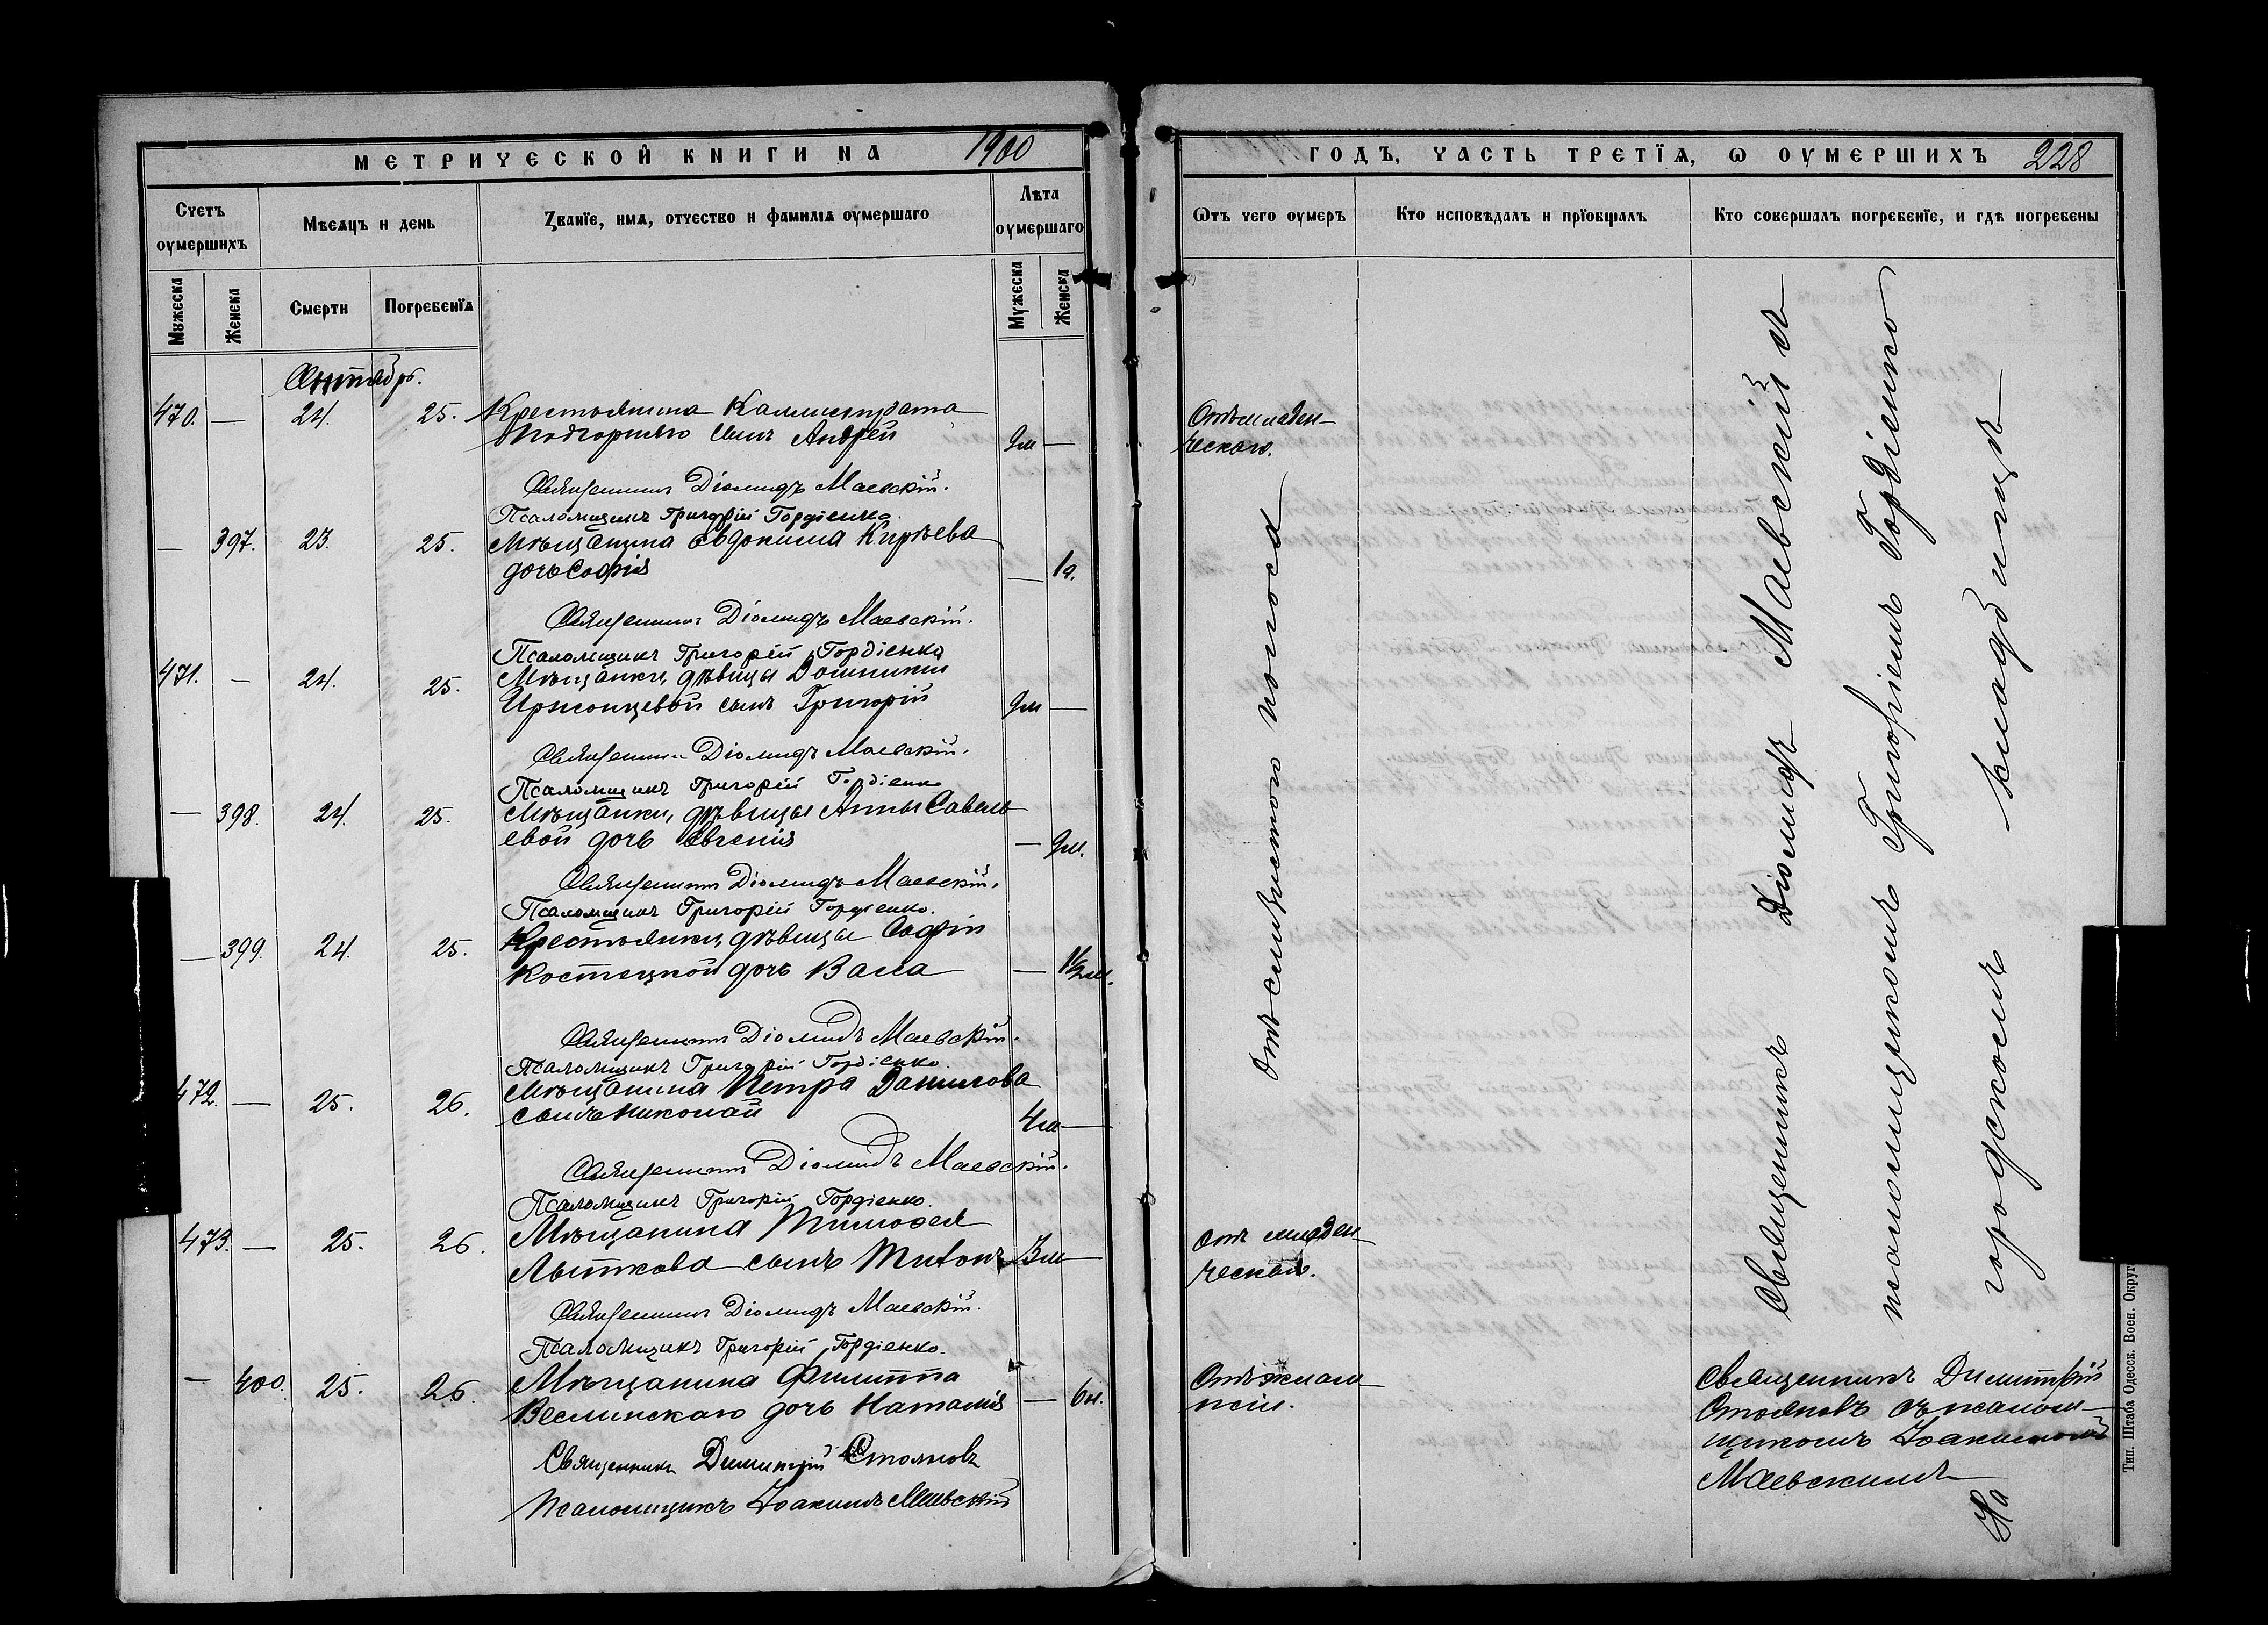 МЕТРИЧЕСКОЙ КНИГИ НА 1900
Счетъ оумершихъ
Мѣсяцъ и день
Званїе, имя, отчество и фамилїя оумершаго
Лѣта оумершаго
Мужеска
Женска
Смерти
Погребенїя
Мужеска
Женска
470. — 24. 25. Крестьянина Каллистрата
Подгорнаго сынъ Андрей 9м —
Священникъ Діомидъ Маевскій.
Псаломщикъ Григорій Гордіенко.
— 397. 23. 25. Мѣщанина Евдокима Кирѣева
дочь Софія — 1г.
Священникъ Діомидъ Маевскій.
Псаломщикъ Григорій Гордіенко
471. — 24. 25. Мѣщанки, дѣвицы Домникіи
сынъ Григорій 9м —
Священникъ Діомидъ Маевскій.
Псаломщикъ Григорій Гордіенко
— 398. 24. 25. Мѣщанки, дѣвицы Анны Савель
евой дочь Евгенія — 9м.
Священникъ Діомидъ Маевскій.
Псаломщикъ Григорій Гордіенко.
— 399. 24. 25. Крестьянки, дѣвицы Софіи
Костецкой дочь Васса — 1½м.
Священникъ Діомидъ Маевскій.
Псаломщикъ Григорій Гордіенко.
472. — 25. 26. Мѣщанина Петра Данилова
сынъ Николай 4м —
Священникъ Діомидъ Маевскій.
Псаломщикъ Григорій Гордіенко.
473. — 25. 26. Мѣщанина Тимофея
Лыткова сынъ Титъ 3м —
Священникъ Діомидъ Маевскій.
Псаломщикъ Григорій Гордіенко.
— 400. 25. 26. Мѣщанина Филиппа
Веслинскаго дочь Наталія — 6н.
Священникъ Димитрій Стояновъ
Псаломщикъ Іоакимъ Маевскій
ГОДЪ, ЧАСТЬ ТРЕТЇЯ, Ѡ ОУМЕРШИХЪ 228
Ѿтъ чего оумеръ
Кто исповѣдалъ и прїобщалъ
Кто совершалъ погребенїе, и гдѣ погребены
Отъ младен-
ческаго.
Отъ слизистаго поноса
Отъ младен-
ческаго.
Отъ эклам-
псіи.
Священникъ Діомидъ Маевскій съ
псаломщикомъ Григоріемъ Гордіенко
Священникъ Димитрій
Стояновъ съ псалом-
щикомъ Іоакимомъ
Маевскимъ
На городскомъ кладбищѣ
Тип. Штаба Одесск. Воен. Округа